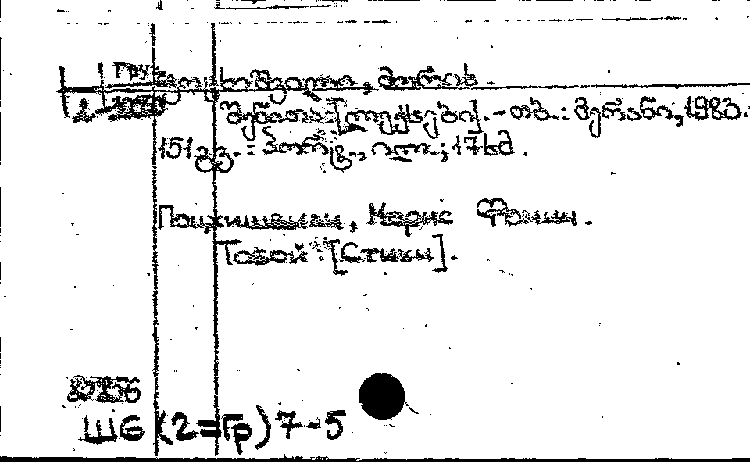 ფოცხიშვილი, მორის.
შენითა: [ლექსები]. - თბ.: მერანი, 1983. -
151 გვ.: პორტ., ილ.; 17 სმ.
Поцхишвили, Морис Фомич.
Тобой: [Стихи].
Ш6 (2=Гр) 7-5